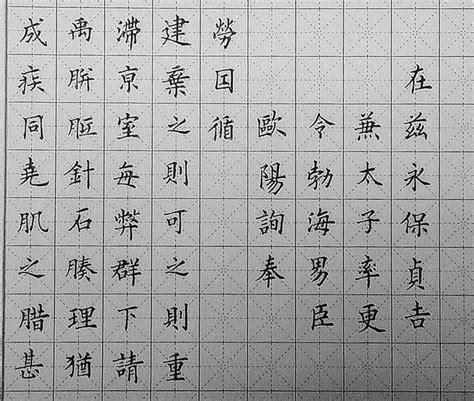 成疾同堯肌之腊甚
禹胼胝針石腠理猶
滯亰室每弊群下請
建棄之則可之則重
勞囙循
在兹永保貞吉
兼太子率更
令勃海男臣
歐陽詢奉